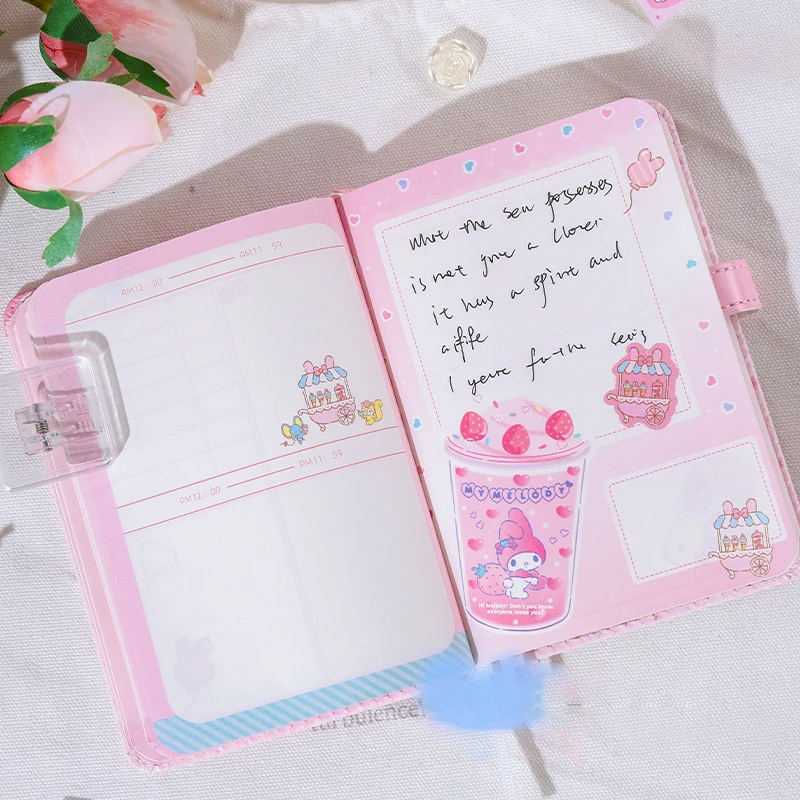 AM12: 00 AM11: 59
PM12: 00 PM11: 59
what the sea possesses
is not just a lover
it has a spirit and
a life
I yearn for the seas
MY MELODY
Hi Melody! Don't you know
everyone loves you?
turbulence